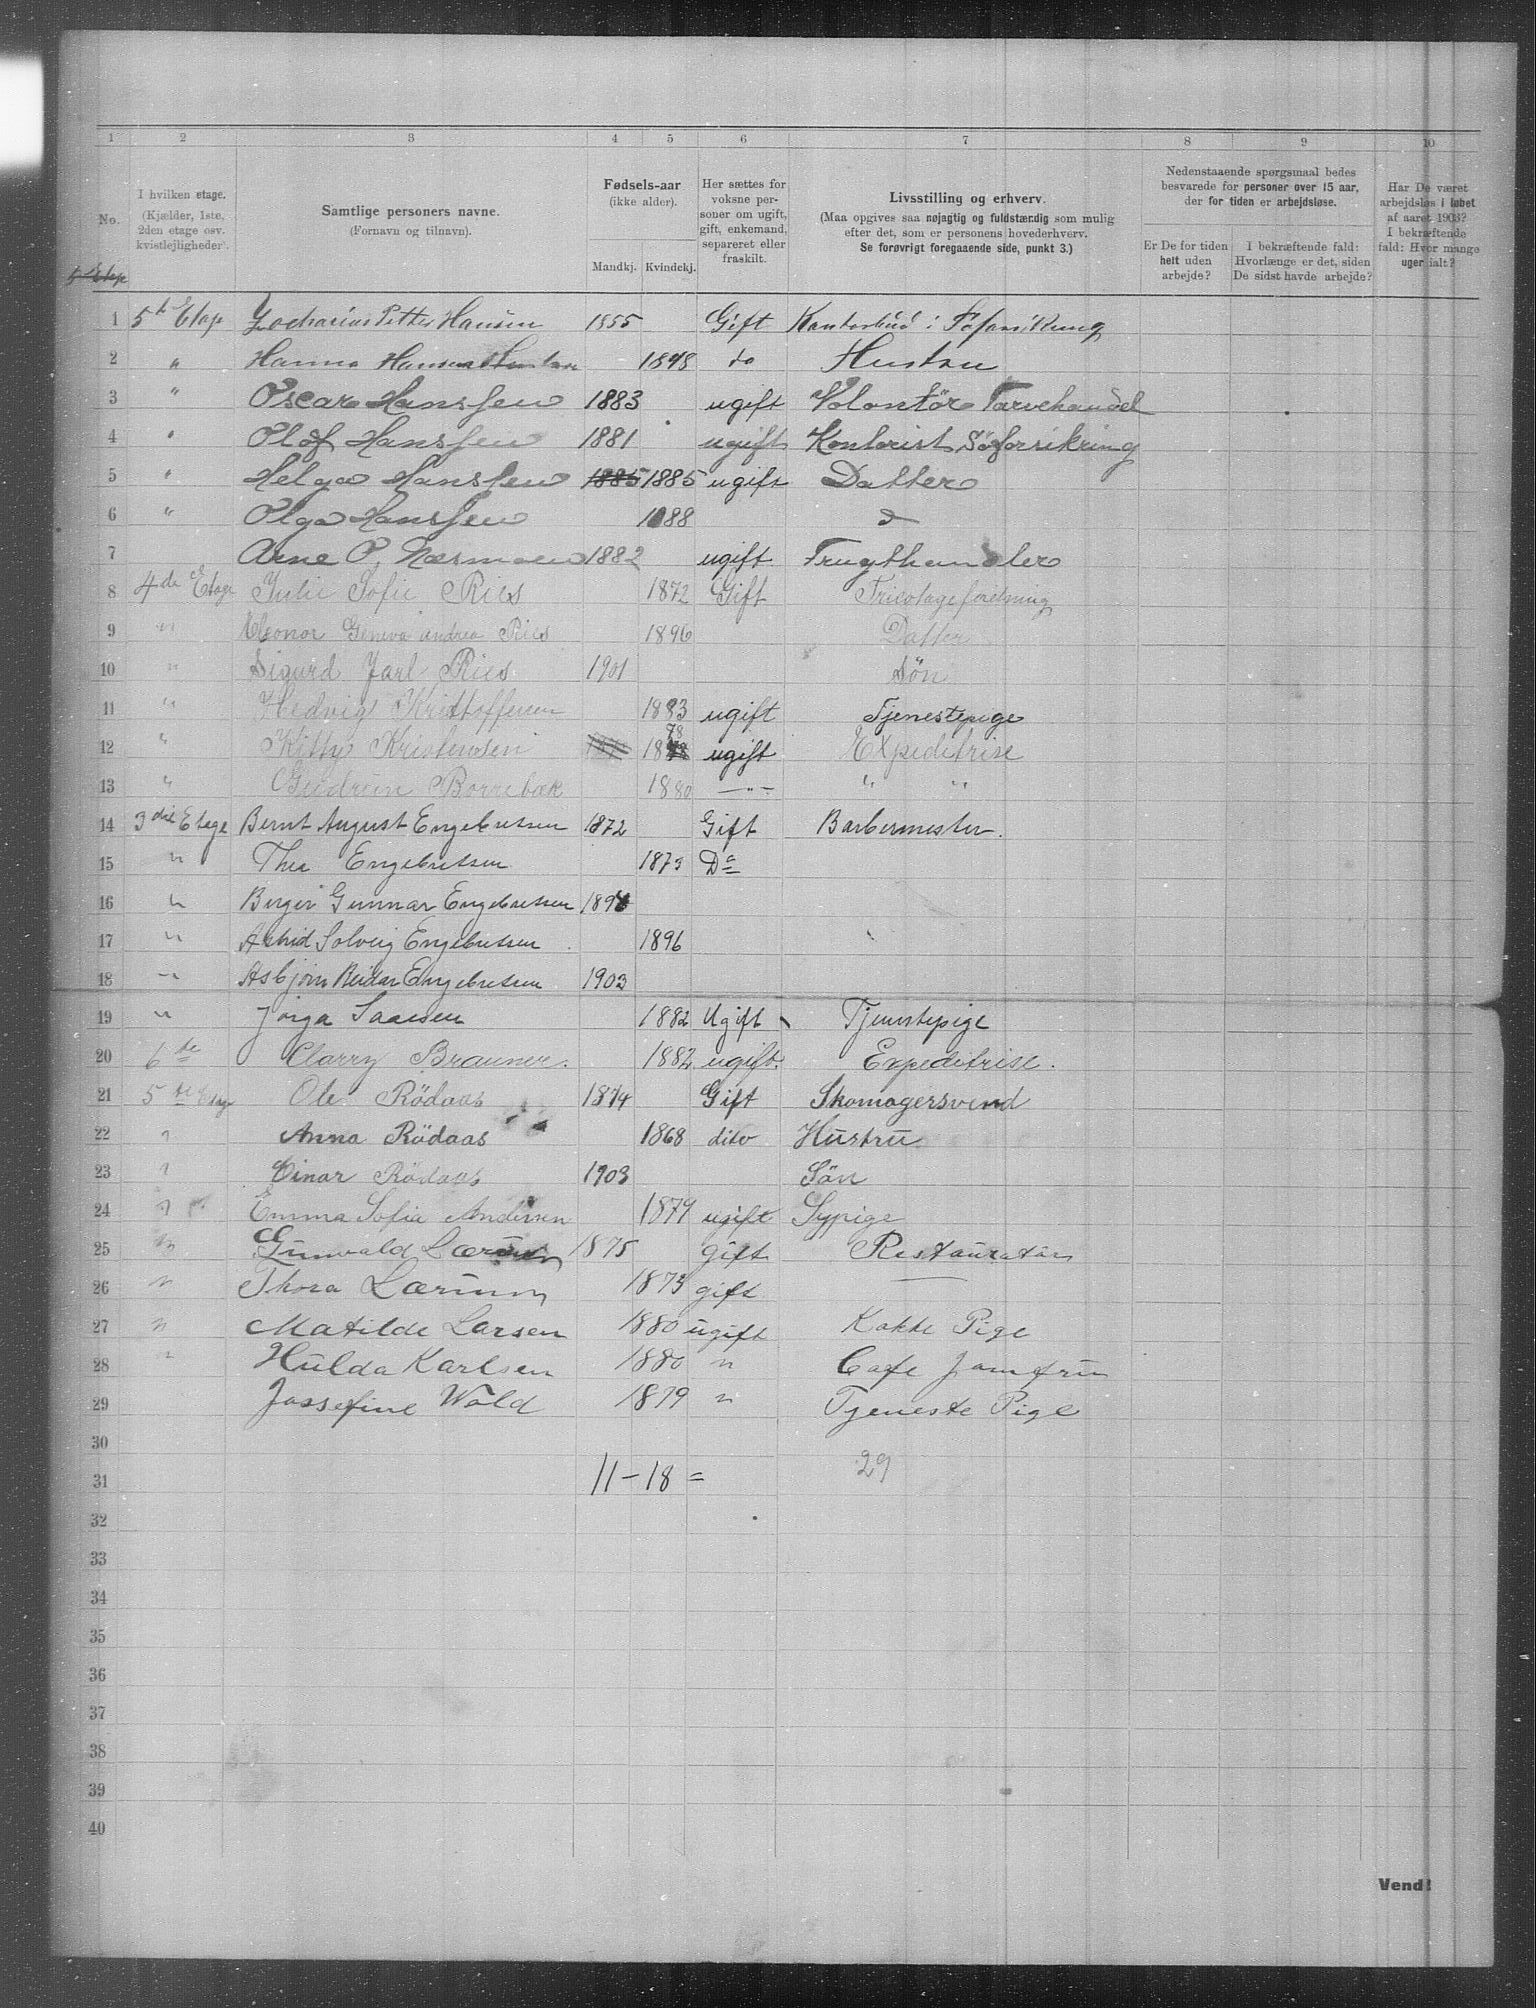 1 2 3 4 5 6 7 8 9 10
No. I hvilken etage. (Kjælder, 1ste, 2den etage osv. kvistlejligheder). Samtlige personers navne. (Fornavn og tilnavn). Fødsels-aar (ikke alder). Mandkj. Kvindekj. Her sættes for voksne personer om ugift, gift, enkemand, separeret eller fraskilt. Livsstilling og erhverv. (Maa opgives saa nøjagtig og fuldstændig som mulig efter det, som er personens hovederhverv. Se forøvrigt foregaaende side, punkt 3.) Nedenstaaende spørgsmaal bedes besvarede for personer over 15 aar, der for tiden er arbejdsløse. Er De for tiden helt uden arbejde? I bekræftende fald: Hvorlænge er det, siden De sidst havde arbejde? Har De været arbejdsløs i løbet af aaret 1903? I bekræftende fald: Hvor mange uger ialt?
1 5t Etage Zacharias Petter Hansen 1855 Gift Kontorbud i
2 " Hanna Hansen 1848 do Hustru
3 " Oscar Hanssen 1883 ugift Volontör Farvehandel
4 " Olaf Hanssen 1881 ugift Kontorist Söforsikring
5 " Helga Hanssen 1885 1885 ugift Datter
6 " Olga Hanssen 1888 d
7 Arne P. Næsmoen 1882 ugift Frugthandler
8 4de Etage Julie Sofie Ries 1872 Gift Tricotageforretning
9 " Eleonor Geneva Andrea Ries 1896 Datter
10 " Sigurd Jarl Ries 1901 Sön
11 " Hedvig Kristoffersen 1883 ugift Tjenestepige
12 " Kitty Kristensen 1878 ugift Expeditrise
13 " Gudrun Borrebæk 1880 — " — " "
14 3die Etage Bernt August Engebretsen 1872 Gift Barbermester.
15 " Thea Engebretsen 1875 Do
16 " Birger Gunnar Engebretsen 1894
17 " Astrid Solveig Engebretsen 1896
18 " Asbjörn Reidar Engebretsen 1903
19 " Jörga Saaesen 1882 Ugift Tjenstepige
20 6te Clarry Brauner. 1882 ugift. Expeditrise.
21 5te Etage Ole Rödaas 1874 Gift Skomagersvend
22 " Anna Rödaas 1868 dito Hustru
23 " Einar Rödaas 1903 Sön
24 " Emma Sofia Andersen 1879 ugift Sypige
25 " Gunvald Lærum 1875 gift Restauratör
26 " Thora Lærum 1873 gift —
27 " Matilde Larsen 1880 ugift Kokke Pige
28 " Hulda Karlsen 1880 " Cafe Jomfru
29 Jossefine Wold 1879 " Tjeneste Pige
30
31 11 – 18 = 29
32
33
34
35
36
37
38
39
40
Vend!